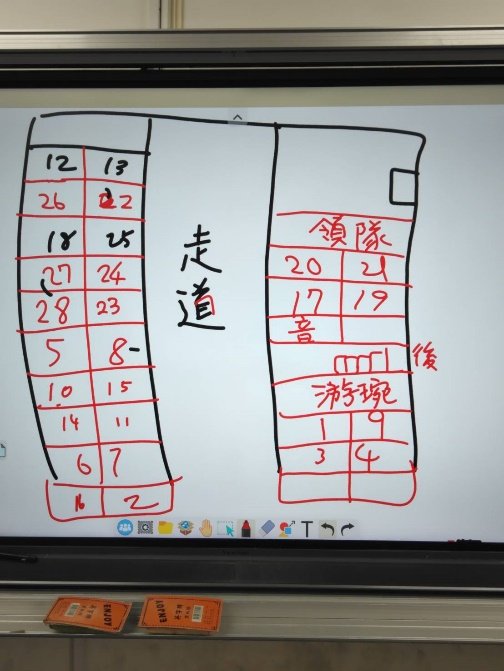 12 13
26 22
18 25
27 24
28 23
5 8
10 15
14 11
6 7
16 2
走道
領隊
20 21
17 19
音
後
游琬
1 9
3 4
T
ENJOY
ENJOY